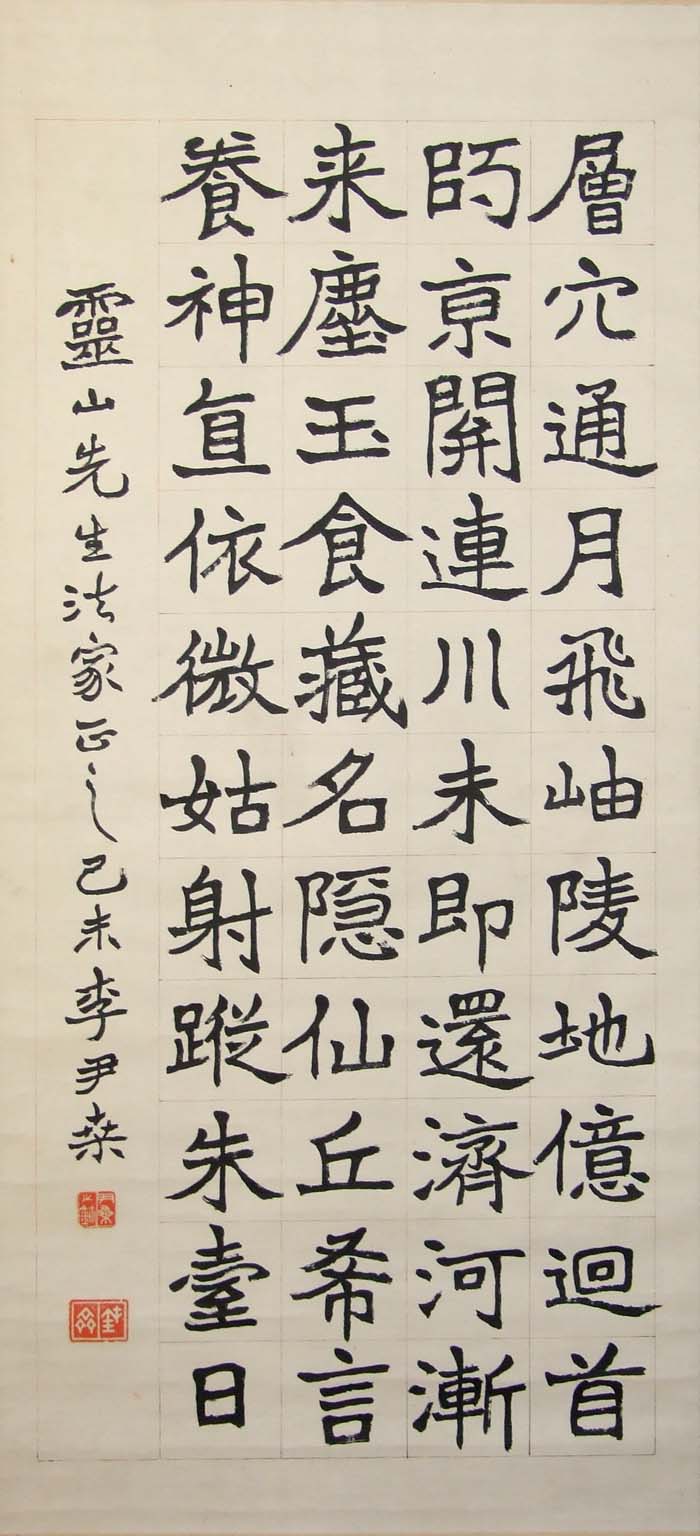 層穴通月飛岫陵地億迴首
師京關連川未即還濟河漸
来塵玉食藏名隠仙丘希言
養神直依微姑射蹤朱臺日
靈山先生法家正之己未李尹桑